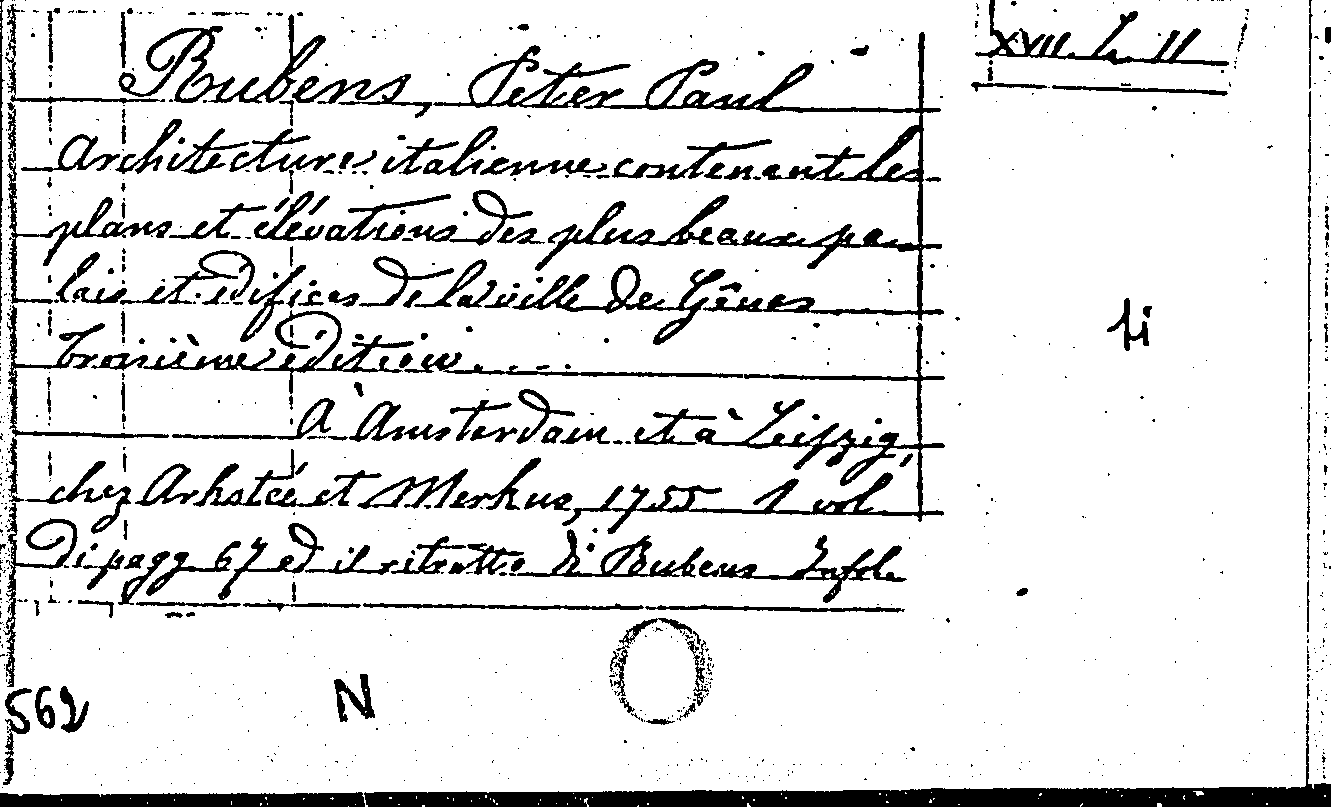 XVII. L. 11
Rubens, Peter Paul
Architecture italienne contenant les
plans et élévations des plus beaux pa-
lais et edifices de la ville de Gênes
troisième édition....
A Amsterdam et à Leipzig,
chez Arkstée et Merkus, 1755 1 vol.
di pagg 67 ed il ritratto di Rubens In fol.
562
N